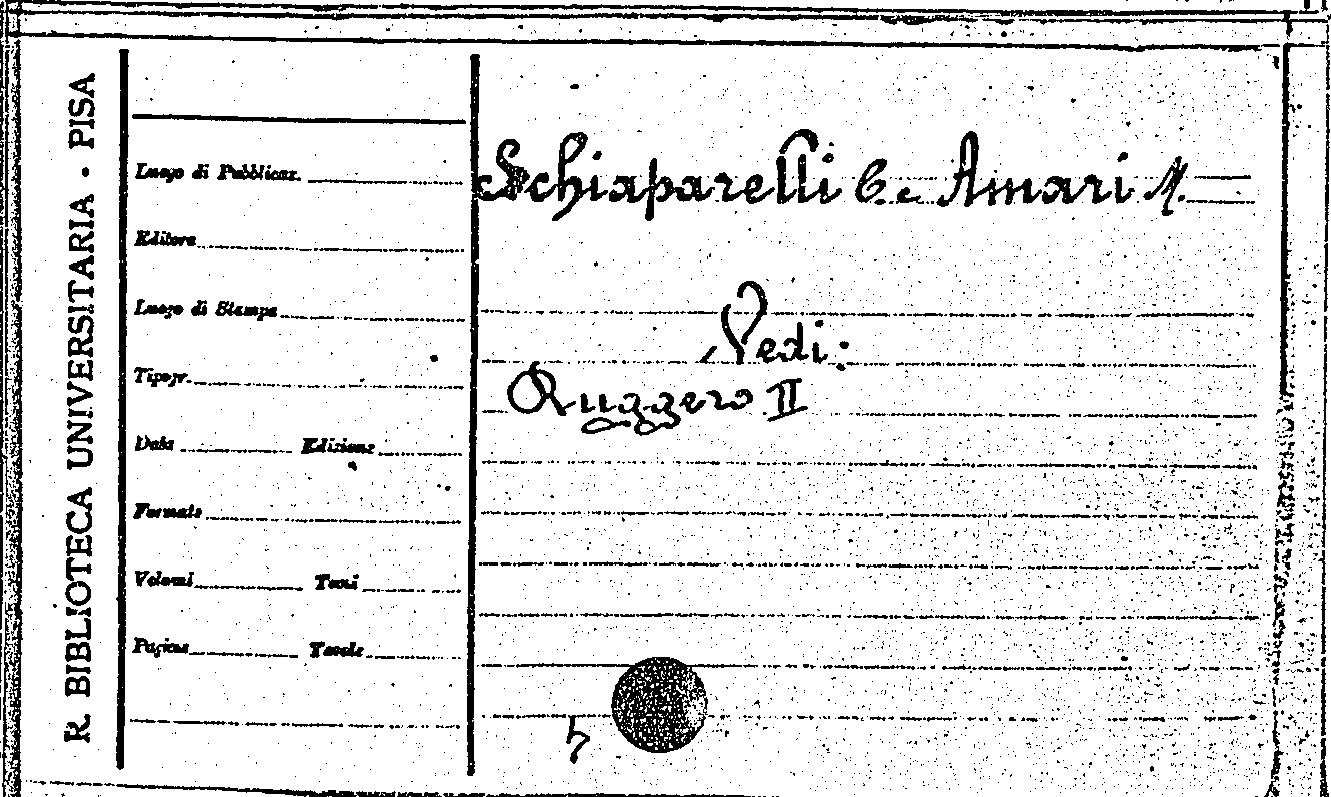 R. BIBLIOTECA UNIVERSITARIA · PISA
Luogo di Pubblicaz.
Editore
Luogo di Stampa
Tipogr.
Data Edizione
Formato
Volumi Tomi
Pagine Tavole
Schiaparelli C. e Amari M.
Vedi:
Ruggero II